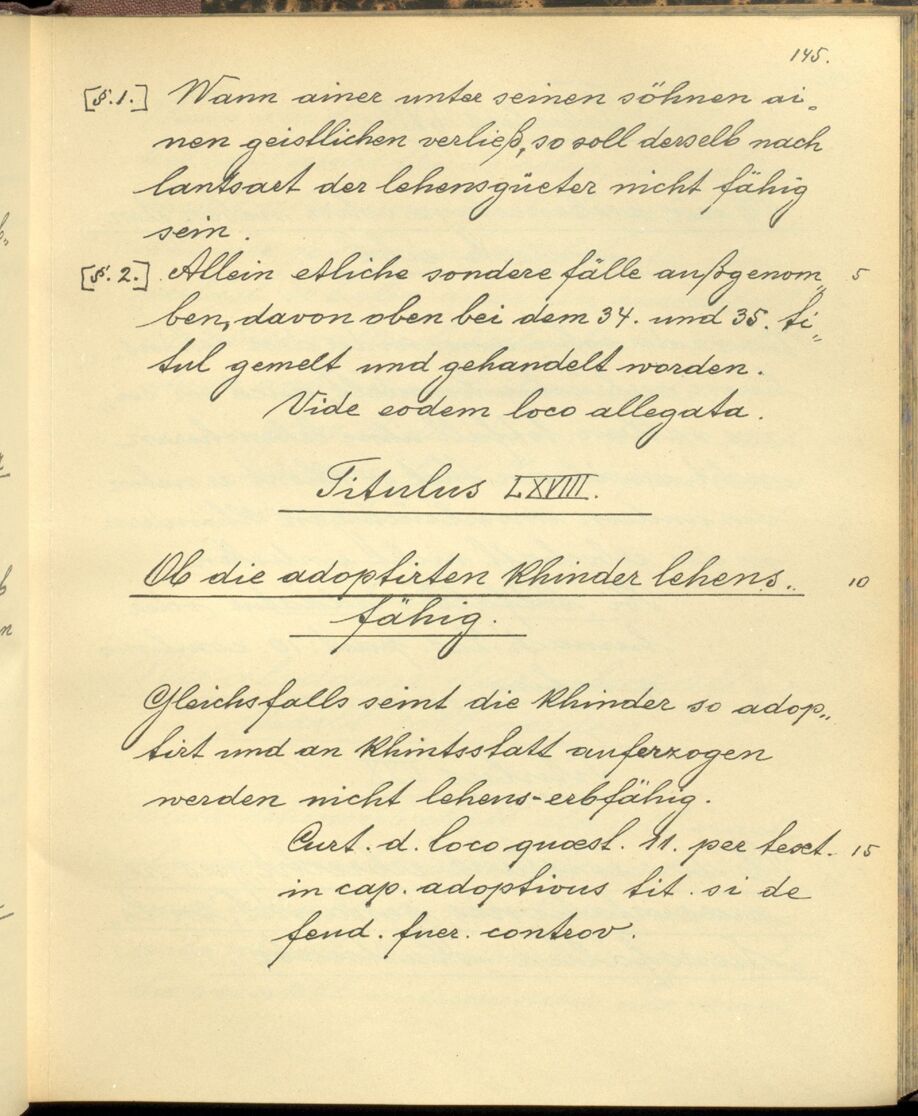 145.
[§.1.] Wann ainer unter seinen söhnen ai„
nen geistlichen verließ, so soll derselb nach
lantsart der lehensgüeter nicht fähig
sein.
[§.2.] Allein etliche sondere fälle außgenom„ 5
ben, davon oben bei dem 34. und 35. ti„
tul gemelt und gehandelt worden.
Vide eodem loco allegata.
Titulus LXVIII.
Ob die adoptirten khinder lehens„ 10
fähig.
Gleichsfalls seint die khinder so adop„
tirt und an khintsstatt auferzogen
werden nicht lehens-erbfähig.
Curt. d. loco quæst. 11. per text. 15
in cap. adoptivus tit. si de
feud. fuer. controv.